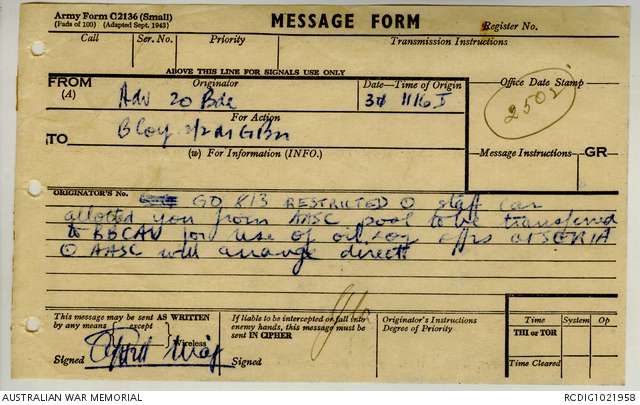 Army Form C2136 (Small)
(Pads of 100) (Adapted Sept. 1943)
MESSAGE FORM
Register No.
Call Ser. No. Priority Transmission Instructions
ABOVE THIS LINE FOR SIGNALS USE ONLY
FROM Originator Date—Time of Origin Office Date Stamp
(A) Adv 20 Bde 30 1116 I
2502
For Action
TO B Coy 2/2 Bn
(w) For Information (INFO.) Message Instructions GR
ORIGINATOR'S No. GO 813 RESTRICTED ⊙ staff car
allotted you from AASC pool to be transferred
to BBCAU for use of oil offrs at SERIA
⊙ AASC will arrange direct
This message may be sent AS WRITTEN
by any means except Wireless
If liable to be intercepted or fall into
enemy hands, this message must be
sent IN CIPHER
Originator's Instructions
Degree of Priority
Time System Op
THI or TOR
Time Cleared
Signed Maj Signed
AUSTRALIAN WAR MEMORIAL RCDIG1021958